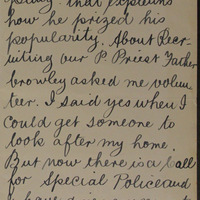 that explains
how he prized his
popularity. About Recr-
uiting our P. Priest Father
browley asked me volun
teer. I said yes when I
could get someone to
look after my home.
But now there is a Call
for Special Police and